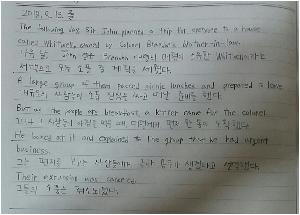 2018. 5. 13. 일
The following day Sir John planned a trip for everyone to a house
called Whitwell owned by Colonel Brandon's brother-in-law.
다음 날, John 경은 Brandon 매형이 소유한 Whitwell이라는
모두 소풍 갈 계획을 세웠다.
A large group of them packed picnic lunches and prepared to leave
사람들은 소풍 점심을 싸고 준비를 했다.
But as the people ate breakfast, a letter came for the colonel.
그러나 사람들이 아침을 먹을 때, 편지 한 통이 도착했다.
He looked at it and explained to the group that he had urgent
business.
그는 편지를 보고 사람들에게 급한 용무가 생겼다고 설명했다.
Their excursion was canceled.
그들의 소풍은 취소되었다.